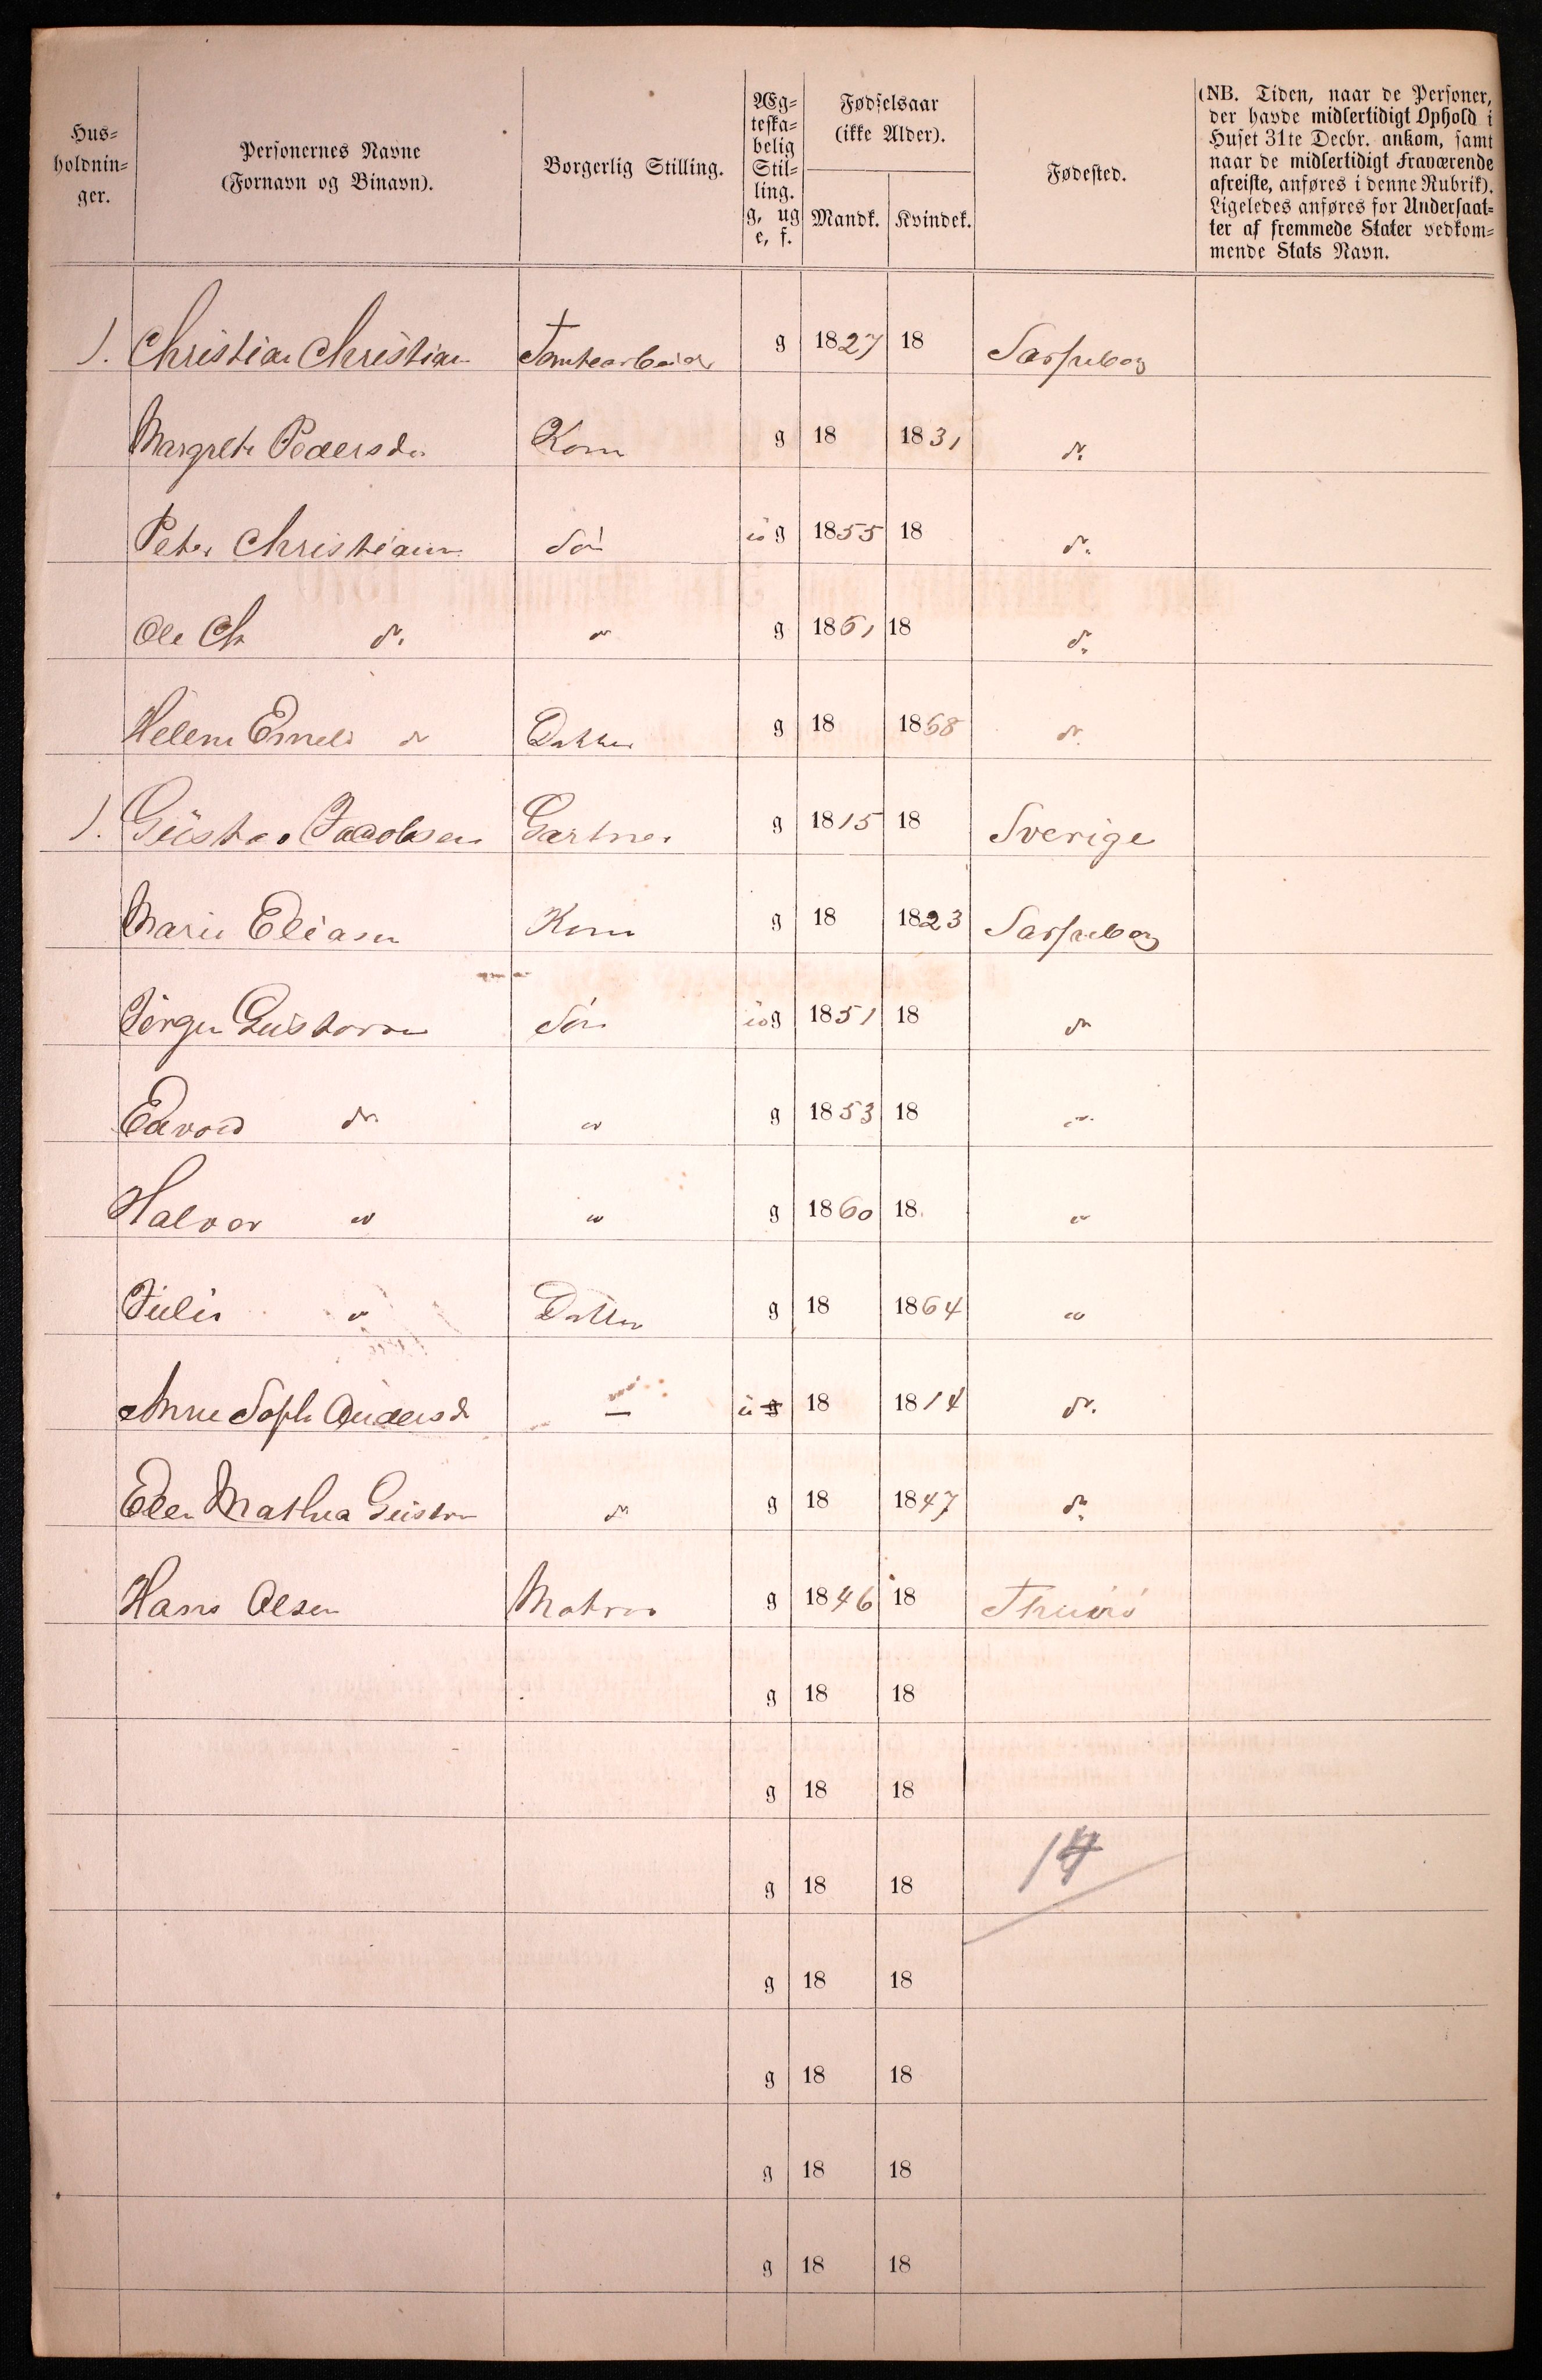 Hus-
holdnin-
ger.
Personernes Navne
(Fornavn og Binavn).
Borgerlig Stilling.
Æg-
teska-
belig
Stil-
ling.
g, ug
e, f.
Fødselsaar
(ikke Alder).
Mandk.
Kvindek.
Fødested.
(NB. Tiden, naar de Personer,
der havde midlertidigt Ophold i
Huset 31te Decbr. ankom, samt
naar de midlertidigt Fraværende
afreiste, anføres i denne Rubrik).
Ligeledes anføres for Undersaat-
ter af fremmede Stater vedkom-
mende Stats Navn.
1. Christian Christian Tomtearbeider g 1827 18 Sarpsborg
Margrete Pedersdr Kone g 18 1831 do
Peter Christians Søn ug 1855 18 do
Ole Ch do " g 1861 18 do
Helene Emeli do Datter g 18 1868 do
1. Gustav Jacobsen Gartner g 1815 18 Sverige
Marie Eliasen Kone g 18 1823 Sarpsborg
Jørgen Gustavsen Søn ug 1851 18 do
Edvard do " g 1853 18 "
Halvor " " g 1860 18 "
Julie " Datter g 18 1864 "
Anne Soph Andersd — u g 18 1814 do
Elen Mathea Gustav do g 18 1847 do
Hans Olsen Matros g 1846 18
g 18 18
g 18 18
g 18 18 14
g 18 18
g 18 18
g 18 18
g 18 18